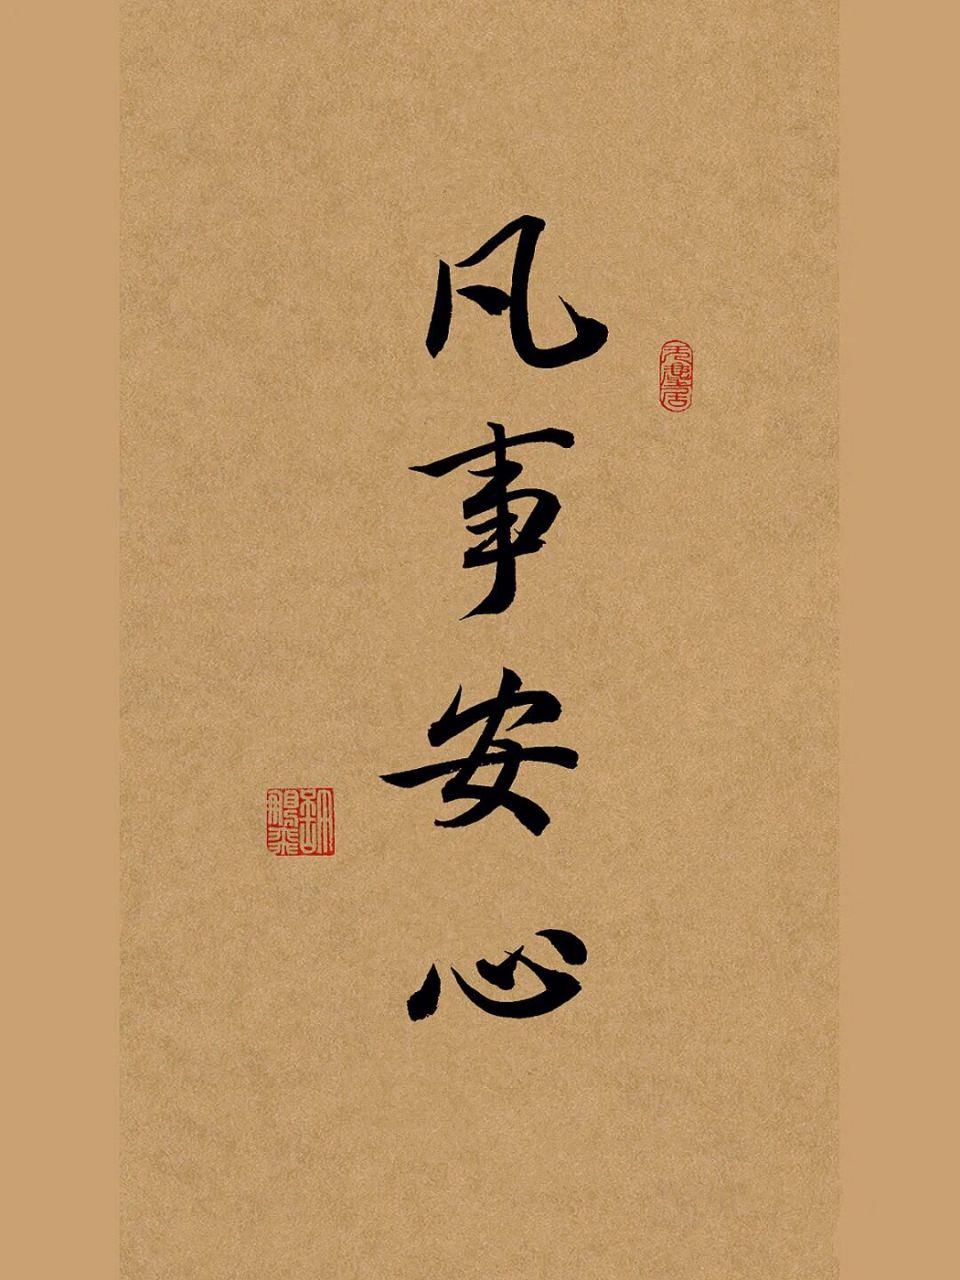 凡事安心